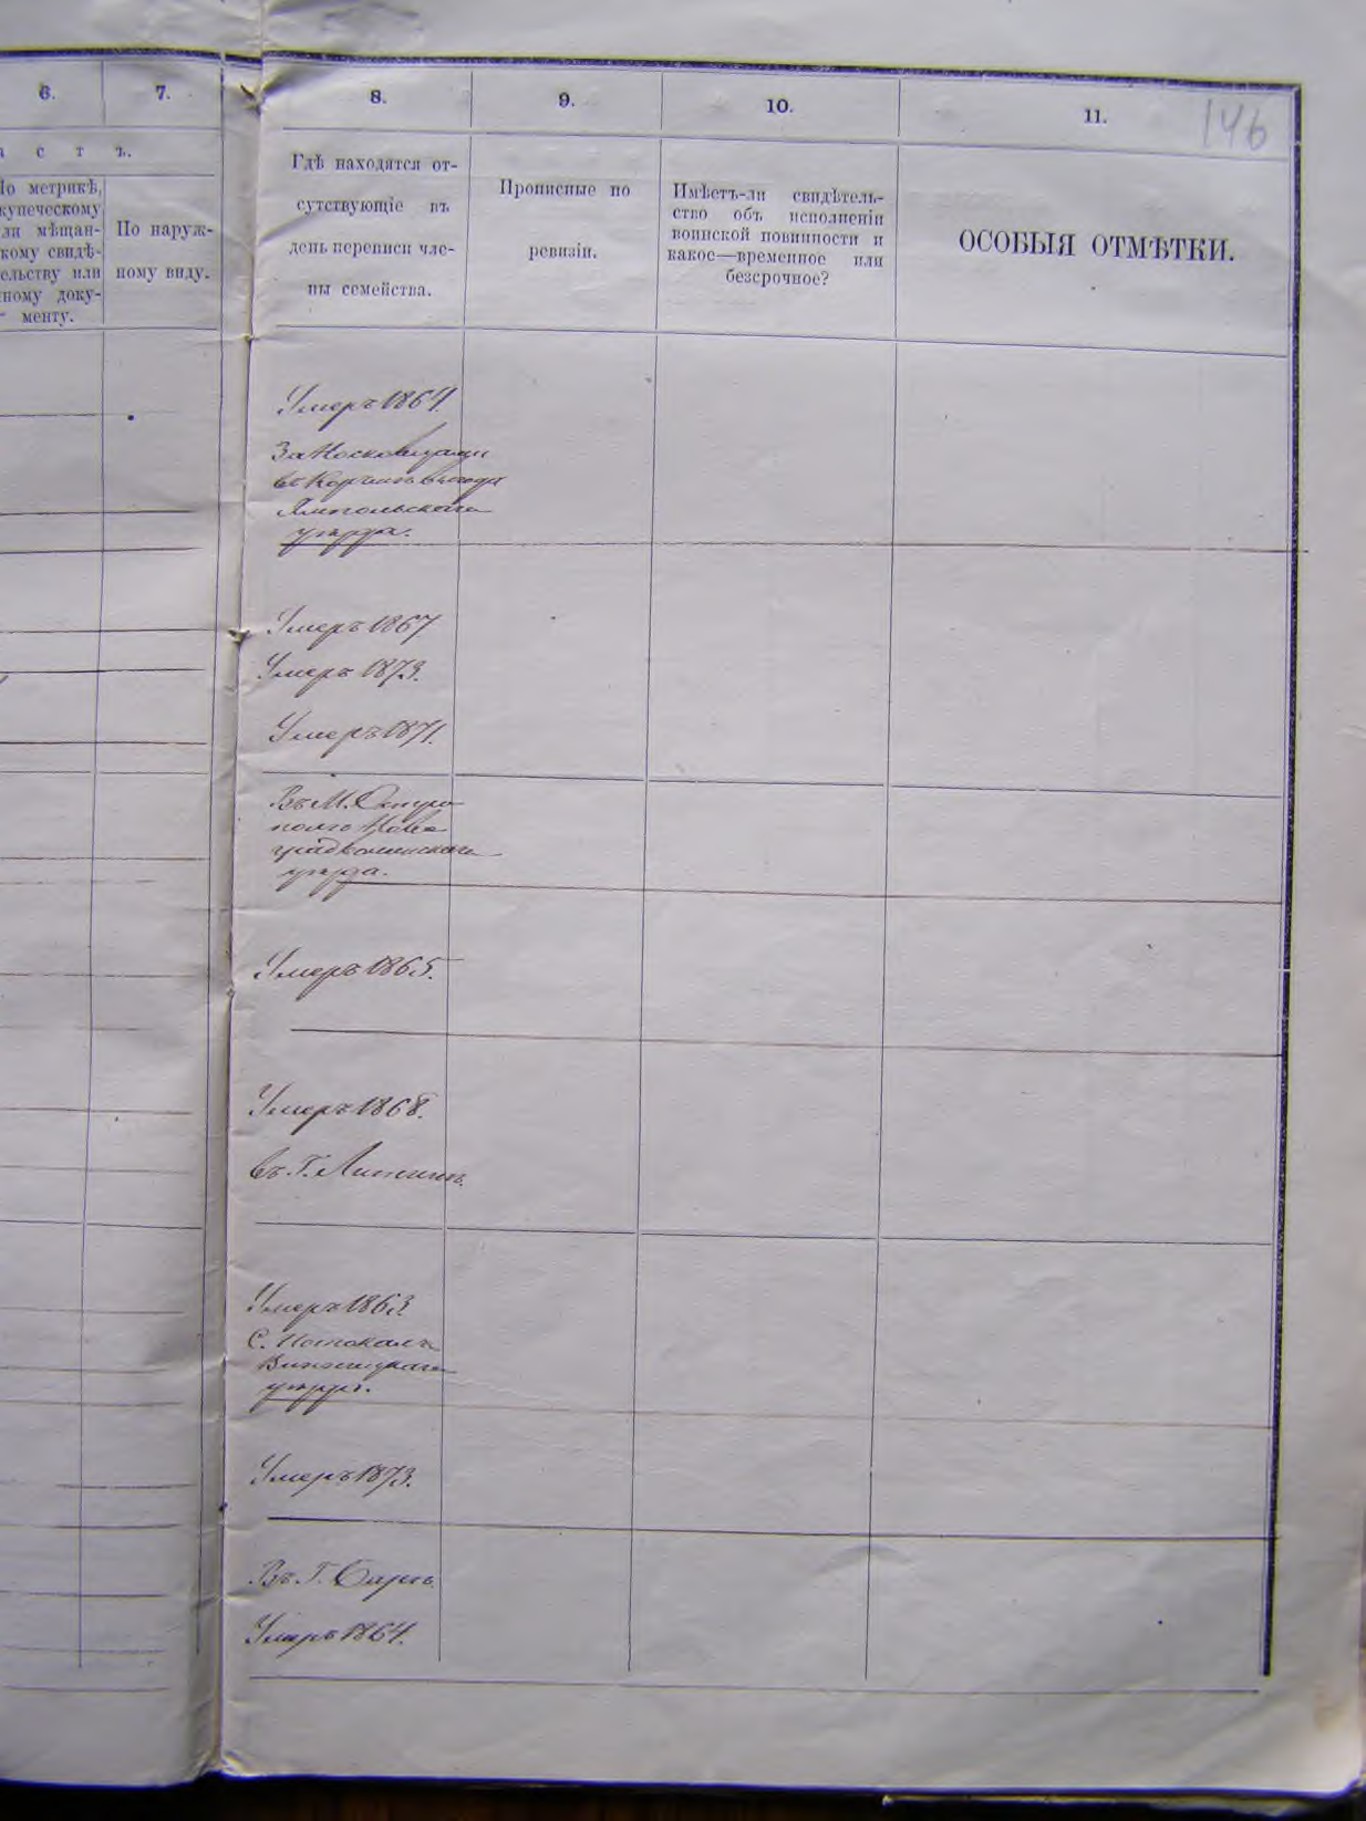 6.
7.
8.
9.
10.
11.
146
с т ъ.
По метрикѣ,
купеческому
или мѣщан-
скому свидѣ-
тельству или
иному доку-
менту.
По наруж-
ному виду.
Гдѣ находятся от-
сутствующіе въ
день переписи чле-
ны семейства.
Прописные по
ревизіи.
Имѣетъ-ли свидѣтель-
ство объ исполненіи
воинской повинности и
какое—временное или
безсрочное?
ОСОБЫЯ ОТМѢТКИ.
Умеръ 1864.
Ямпольскаго
уѣзда.
Умеръ 1867
Умеръ 1873.
Умеръ 1871.
Въ М.
градволынскаго
уѣзда.
Умеръ 1865.
Умеръ 1868.
въ. Г. Литинѣ.
Умеръ 1863
С.
Винницкаго
уѣзда.
Умеръ 1873.
Въ. Г. Барѣ.
Умеръ 1864.